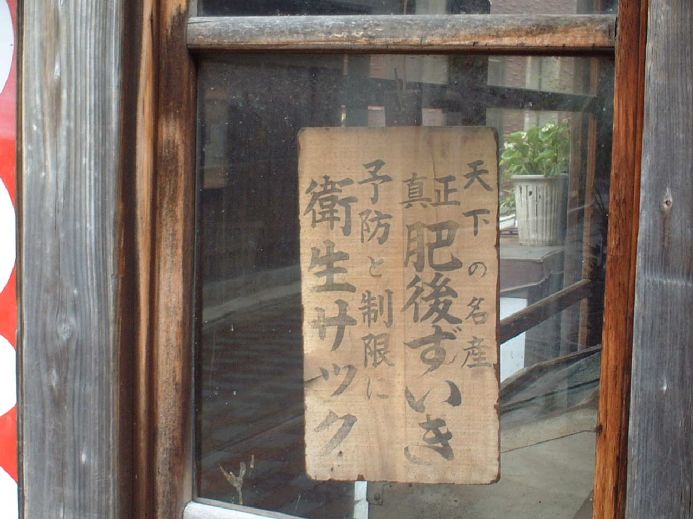 天下の名産
真正肥後ずいき
予防と制限に
衛生サック